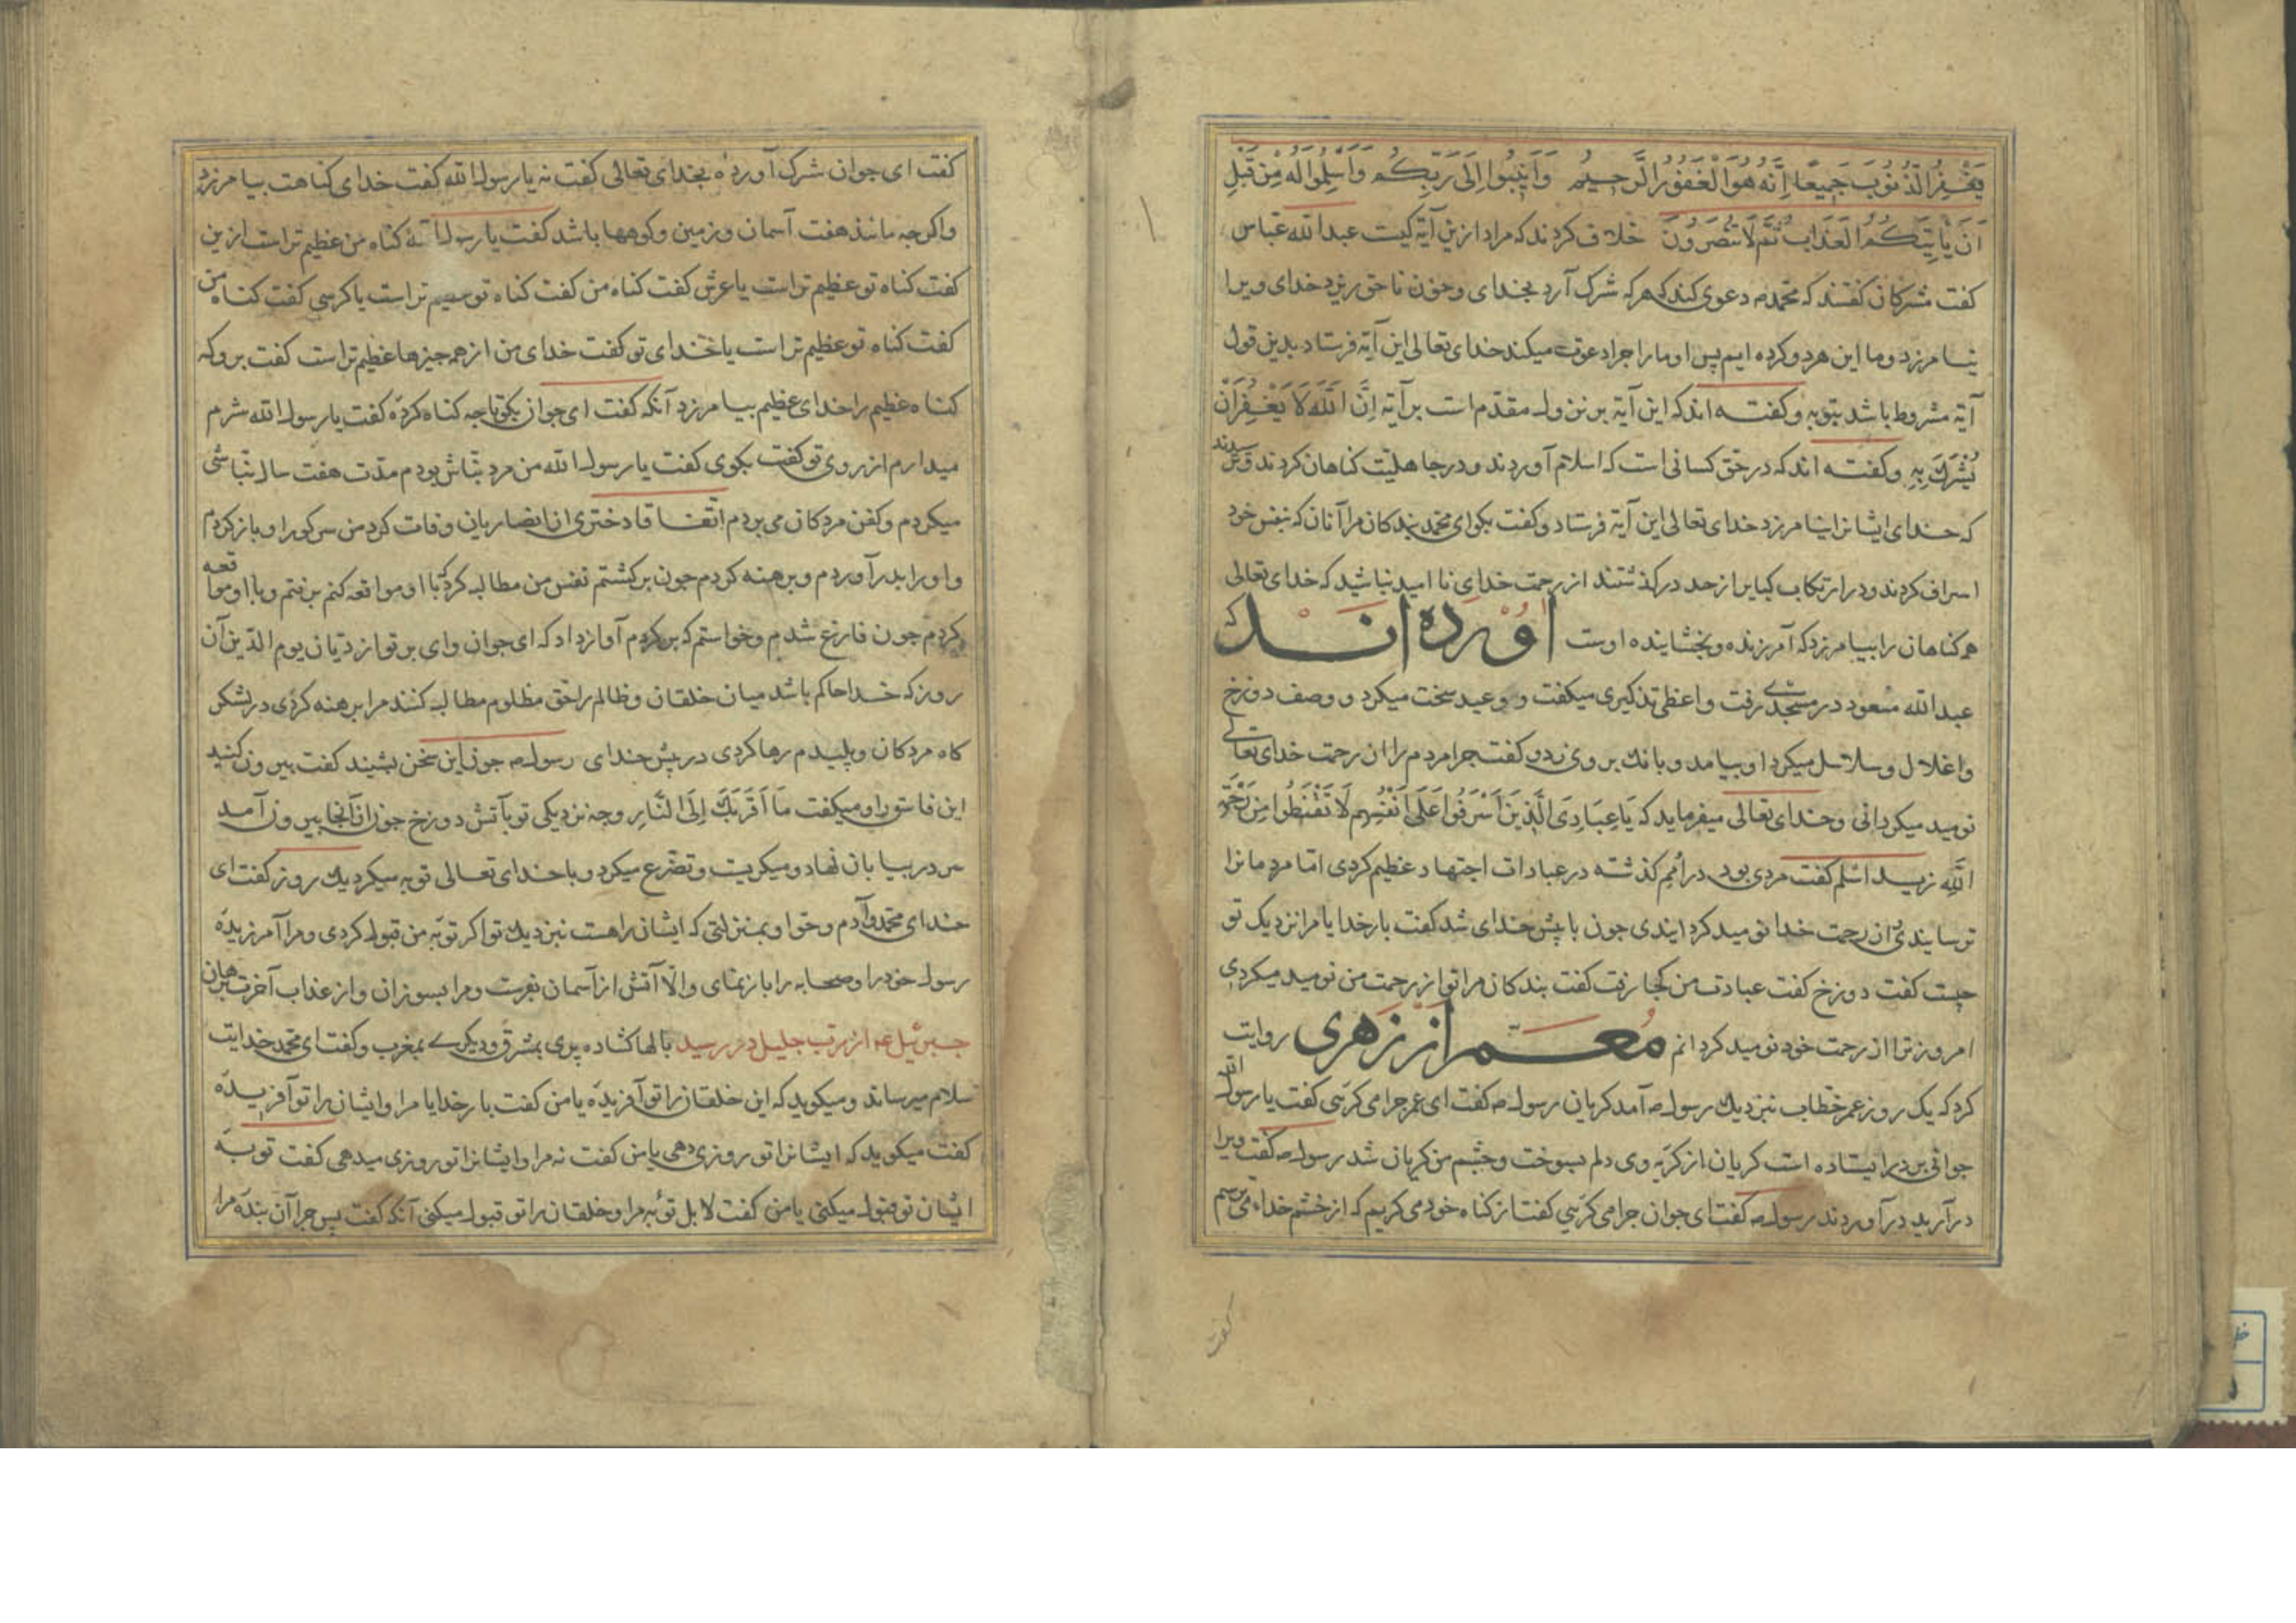 یَغْفِرُ الذُّنُوبَ جَمیعًا اِنَّه هُوَ الْغَفُورُ الرَّحیمُ وَاَنیبُوا اِلَی رَبِّکُم وَاَسْلِمُوا لَهُ مِنْ قَبْلِ
اَنْ یَاْتِیَکُمُ العَذَابُ ثُمَّ لَا تُنصَرُونَ خلاف کردند که مراد ازین آیة کیست عبدالله عباس
کفت مشرکان کفتند که محمد دعوی کند که هرکه شرک آرد بخدای وخون ناحق ریزد خدای ویرا
نیامرزد وما این هردو کرده ایم پس او مارا چرا دعوت میکند خدای تعالی این آیة فرستاد بدین قول
آیة مشروط باشد بتوبه وکفته اند که این آیة بر نزول مقدم است بر آیة اِنَّ اللَّهَ لَا یَغْفِرُ اَنْ
یُشْرَکَ بِهِ وکفته اند که در حق کسانی است که اسلام آوردند ودر جاهلیت کناهان کردند
که خدای ایشانرا نیامرزد خدای تعالی این آیة فرستاد وکفت بکو ای محمد بندکان مرا آنان که بنفس خود
اسراف کردند ودر ارتکاب کبایر از حد درکذشتند از رحمت خدای نا امید نباشید که خدای تعالی
همه کناهان را بیامرزد که آمرزنده وبخشاینده اوست آورده اند که
عبدالله مسعود در مسجدی رفت واعظی تذکیری میکفت و وعید سخت میکرد و وصف دوزخ
واغلال وسلاسل میکرد او بیامد وبانک بر وی زد وکفت چرا مردم را از رحمت خدای تعالی
نومید میکردانی وخدای تعالی میفرماید که یَا عِبَادِیَ الَّذِینَ اَسْرَفُوا عَلَی اَنْفُسِهِم لَا تَقْنَطُوا مِنْ رَحْمَةِ
اللَّهِ زید اسلم کفت مردی بود در اُمَم کذشته در عبادات اجتهاد عظیم کردی امّا مردمانرا
ترسانیدی از رحمت خدا نومید کردانیدی چون با پیش خدای شد کفت بار خدایا مرا نزدیک تو
چیست کفت دوزخ کفت عبادت من کجا رفت کفت بندکان مرا تو از رحمت من نومید میکردی
امروز ترا از رحمت خود نومید کردانم مُعمر از زهری روایت
کرد که یک روز عمر خطاب نزدیک رسول آمد کریان رسول کفت ای عمر چرا می کریی کفت یا رسول الله
جوانی بر در ایستاده است کریان از کریه وی دلم بسوخت وچشم من کریان شد رسول کفت ویرا
درآرید درآوردند رسول کفت ای جوان چرا می کریی کفت از کناه خود می کریم که از خشم خدا می ترسم
کفت
کفت ای جوان شرک آورده بخدای تعالی کفت نه یا رسول الله کفت خدای کناهت بیامرزد
واکرچه مانند هفت آسمان وزمین وکوهها باشد کفت یا رسول الله کناه من عظیم تر است ازین
کفت کناه تو عظیم تر است یا عرش کفت کناه من کفت کناه تو عظیم تر است یا کرسی کفت کناه من
کفت کناه تو عظیم تر است یا خدای تو کفت خدای من از همه چیزها عظیم تر است کفت برو که
کناه عظیم را خدای عظیم بیامرزد آنکه کفت ای جوان بکو تا چه کناه کردهٔ کفت یا رسول الله شرم
میدارم از روی تو کفت بکوی کفت یا رسول الله من مرد نبّاش بودم مدّت هفت سال نبّاشی
میکردم وکفن مردکان می بردم اتّفاقا دختری از انصاریان وفات کرد من سر کور او باز کردم
واورا بدر آوردم وبرهنه کردم چون برکشتم نفس من مطالبه کرد که با او مواقعه کنم برفتم وبا او مواقعه
کردم چون فارغ شدم وخواستم که برکردم آواز داد که ای جوان وای بر تو از دیّان یوم الدّین آن
روز که خدا حاکم باشد میان خلقان وظالم را حق مظلوم مطالبه کنند مرا برهنه کردی در لشکر
کاه مردکان وپلیدم رها کردی در پیش خدای رسول چون این سخن بشنید کفت بیرون کنید
این فاسق را ومیکفت مَا اَقْرَبَکَ اِلَی النَّارِ وچه نزدیکی تو بآتش دوزخ جوان از آنجا بیرون آمد
سر در بیابان نهاد ومیکریست وتضرّع میکرد وبا خدای تعالی توبه میکرد یک روز کفت ای
خدای محمد وآدم وحوا وبمنزلتی که ایشان راهست نزدیک تو اکر توبهٔ من قبول کردی ومرا آمرزیدهٔ
رسول خودرا وصحابه را باز نمای والّا آتش از آسمان بفرست ومرا بسوزان واز عذاب آخرت برهان
جبرئیل از رب جلیل در رسید بالها کشاده پری بمشرق ودیکری بمغرب وکفت ای محمد خدایت
سلام میرساند ومیکوید که این خلقان را تو آفریدهٔ یا من کفت بار خدایا مرا وایشان را تو آفریدهٔ
کفت میکوید که ایشانرا تو روزی دهی یا من کفت نه مرا وایشانرا تو روزی میدهی کفت توبهٔ
ایشان تو قبول میکنی یا من کفت لا بل توبهٔ مرا وخلقان را تو قبول میکنی آنکه کفت پس چرا آن بندهٔ مرا